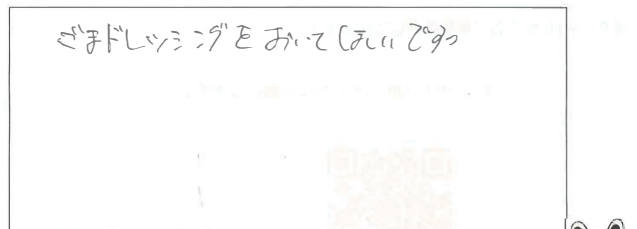 ごまドレッシングをおいてほしいですっ